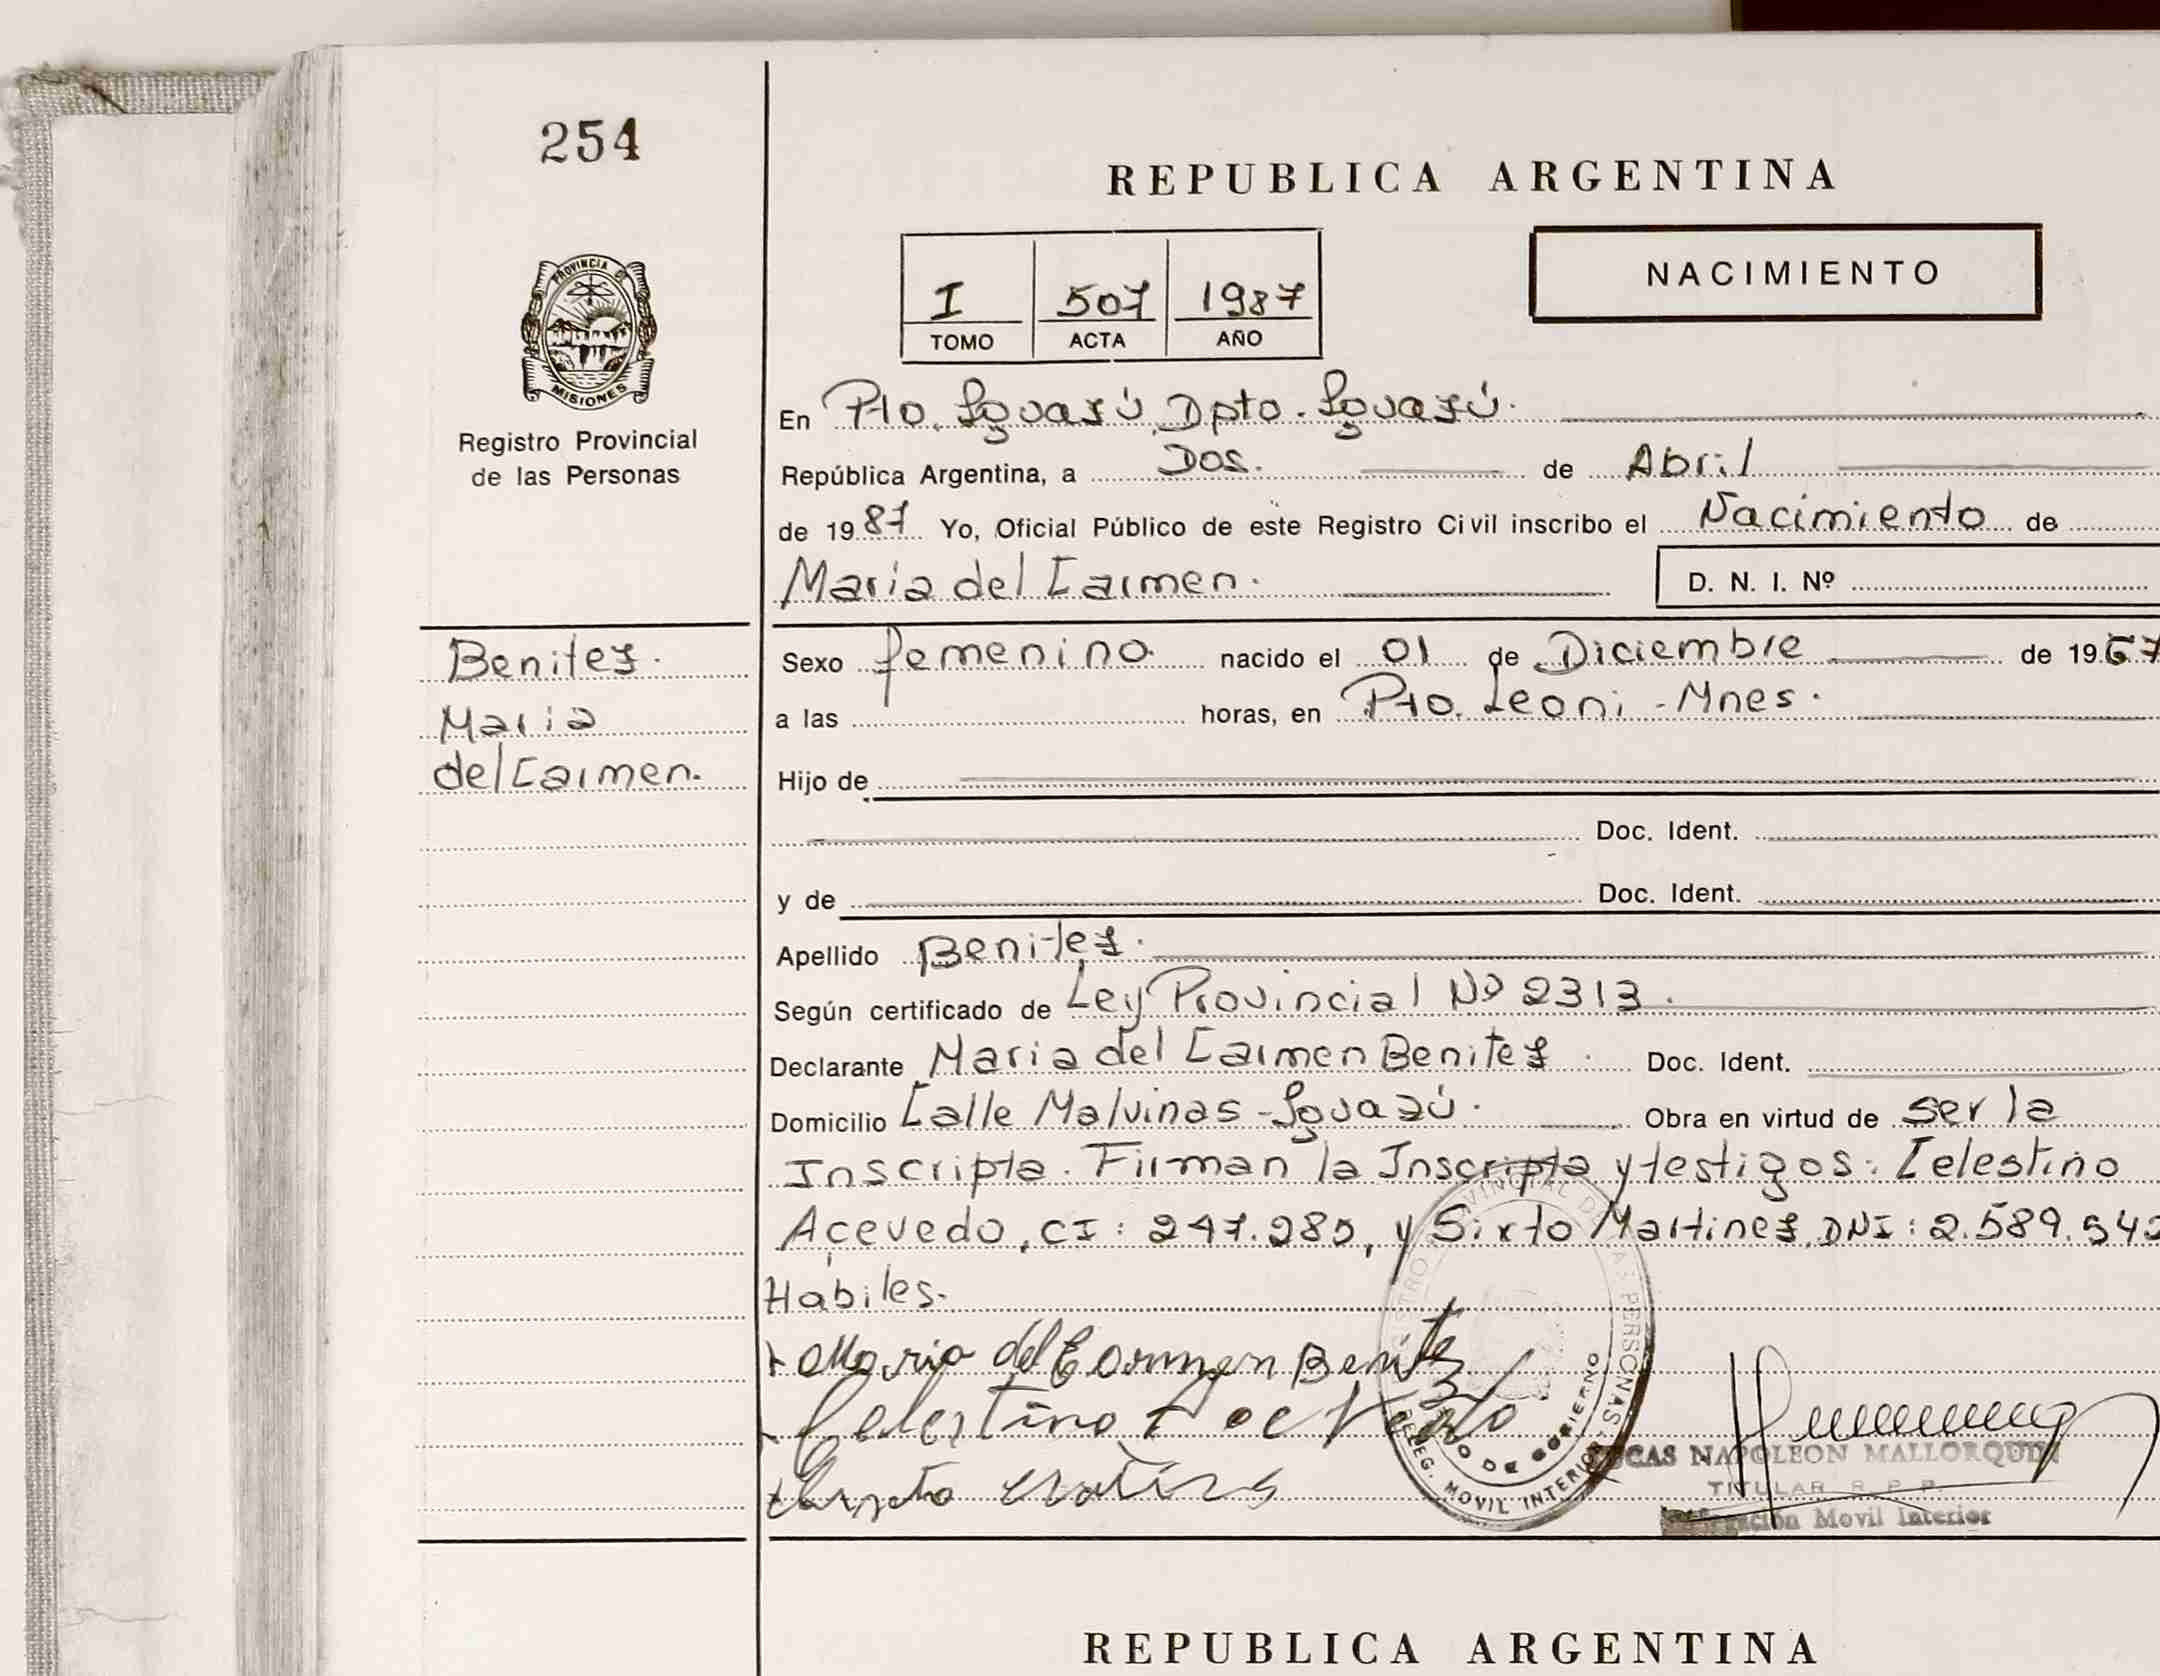 254
REPUBLICA ARGENTINA
PROVINCIA DE
MISIONES
Registro Provincial
de las Personas
I 507 1987
TOMO ACTA AÑO
NACIMIENTO
En Pto. Iguazú Dpto. Iguazú.
República Argentina, a Dos. de Abril
de 1987 Yo, Oficial Público de este Registro Civil inscribo el Nacimiento de
Maria del Carmen.
D. N. I. Nº
Benitez.
Maria
del Carmen.
Sexo femenino nacido el 01 de Diciembre de 1967
a las horas, en Pto. Leoni - Mnes.
Hijo de
Doc. Ident.
y de Doc. Ident.
Apellido Benitez.
Según certificado de Ley Provincial Nº 2313.
Declarante Maria del Carmen Benitez Doc. Ident.
Domicilio Calle Malvinas - Iguazú. Obra en virtud de ser la
Inscripta. Firman la Inscripta y testigos: Celestino
Acevedo, CI: 247.285, y Sixto Martinez, DNI: 2.589.542
Hábiles.
Maria del Carmen Benitez
Celestino
PROVINCIAL DE LAS PERSONAS
DELEG. MOVIL INTERIOR
DE GOBIERNO
LUCAS NAPOLEON MALLORQUIN
TITULAR R. P. P.
Delegación Movil Interior
REPUBLICA ARGENTINA